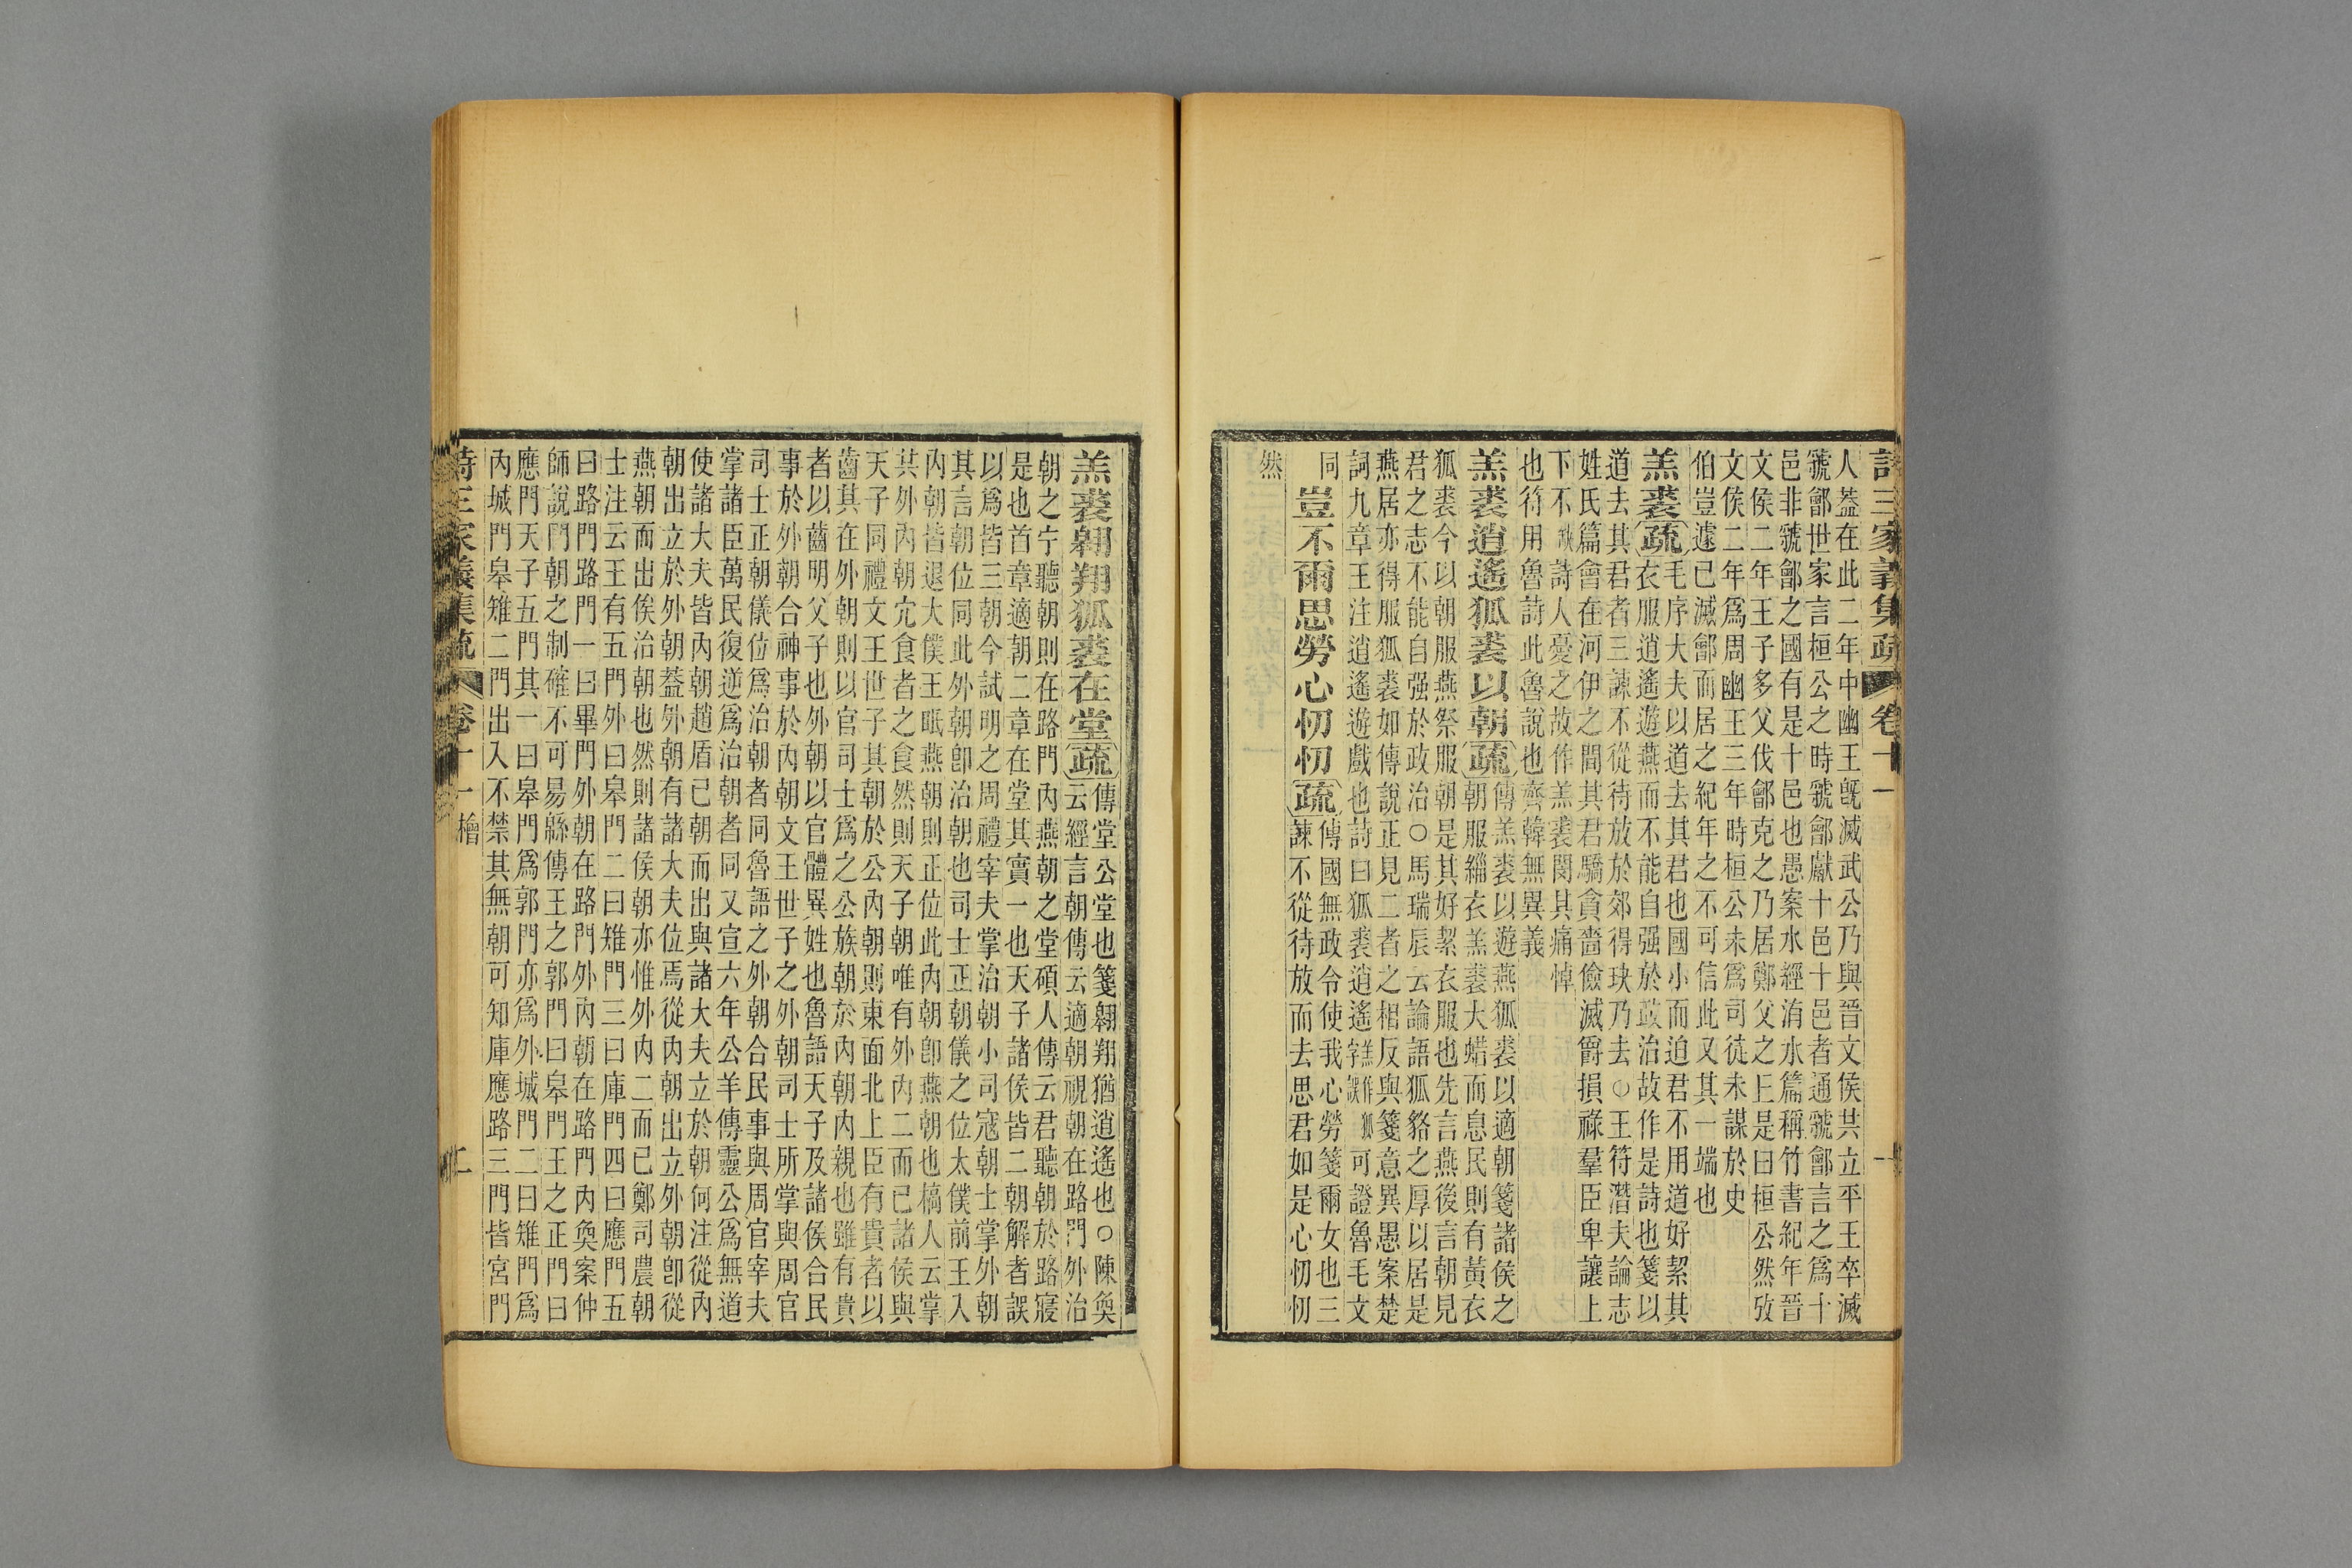 詩三家義集疏 卷十一 一
人葢在此二年中幽王旣滅武公乃與晉文侯共立平王卒滅
虢鄶世家言桓公之時虢鄶獻十邑十邑者通虢鄶言之爲十
邑非虢鄶之國有是十邑也愚案水經洧水篇稱竹書紀年晉
文侯二年王子多父伐鄶克之乃居鄭父之丘是曰桓公然攷
文侯二年爲周幽王三年時桓公未爲司徒未謀於史
伯豈遽已滅鄶而居之紀年之不可信此又其一端也
羔裘疏毛序大夫以道去其君也國小而迫君不用道好絜其
衣服逍遙遊燕而不能自强於政治故作是詩也箋以
道去其君者三諫不從待放於郊得玦乃去○王符潛夫論志
姓氏篇會在河伊之間其君驕貪嗇儉滅爵損祿羣臣卑讓上
下不缺詩人憂之故作羔裘閔其痛悼
也符用魯詩此魯說也齊韓無異義
羔裘逍遙狐裘以朝疏傳羔裘以遊燕狐裘以適朝箋諸侯之
朝服緇衣羔裘大蜡而息民則有黃衣
狐裘今以朝服燕祭服朝是其好絜衣服也先言燕後言朝見
君之志不能自强於政治○馬瑞辰云論語狐貉之厚以居是
燕居亦得服狐裘如傳說正見二者之相反與箋意異愚案楚
詞九章王注逍遙遊戲也詩曰狐裘逍遙羔作狐字誤可證魯毛文
同
豈不爾思勞心忉忉疏傳國無政令使我心勞箋爾女也三
諫不從待放而去思君如是心忉忉
然
羔裘翱翔狐裘在堂疏傳堂公堂也箋翱翔猶逍遙也○陳奐
云經言朝傳云適朝視朝在路門外治
朝之宁聽朝則在路門內燕朝之堂碩人傳云君聽朝於路寢
是也首章適朝二章在堂其實一也天子諸侯皆二朝解者誤
以爲皆三朝今試明之周禮宰夫掌治朝小司寇朝士掌外朝
其言朝位同此外朝卽治朝也司士正朝儀之位太僕前王入
內朝皆退大僕王眂燕朝則正位此內朝卽燕朝也槁人云掌
其外內朝宂食者之食然則天子朝唯有外內二而已諸侯與
天子同禮文王世子其朝於公內朝則東面北上臣有貴者以
齒其在外朝則以官司士爲之公族朝於內朝內親也雖有貴
者以齒明父子也外朝以官體異姓也魯語天子及諸侯合民
事於外朝合神事於內朝文王世子之外朝司士所掌與周官
司士正朝儀位爲治朝者同魯語之外朝合民事與周官宰夫
掌諸臣萬民復逆爲治朝者同又宣六年公羊傳靈公爲無道
使諸大夫皆內朝趙盾已朝而出與諸大夫立於朝何注從內
朝出立於外朝葢外朝有諸大夫位焉從內朝出立外朝卽從
燕朝而出俟治朝也然則諸侯朝亦惟外內二而已鄭司農朝
士注云王有五門外曰皋門二曰雉門三曰庫門四曰應門五
曰路門路門一曰畢門外朝在路門外內朝在路門內奐案仲
師說門朝之制確不可易緜傳王之郭門曰皋門王之正門曰
應門天子五門其一曰皋門爲郭門亦爲外城門二曰雉門爲
內城門皋雉二門出入不禁其無朝可知庫應路三門皆宮門
詩三家義集疏 卷十一 檜 二